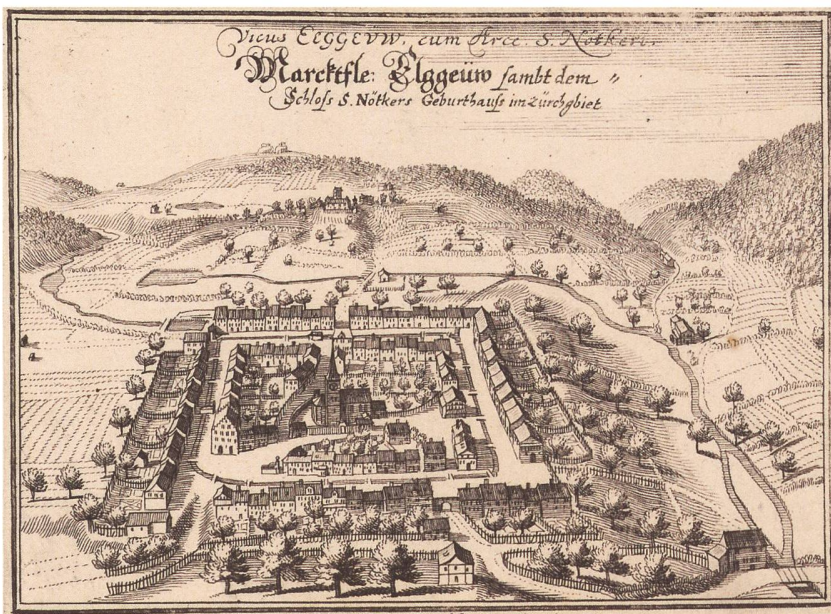 Vicus EEGGEVW. cum Arce. S. Nötkeri.
Marcktfle: Elggeüw sambt dem〃
Schloſs S. Nötkers Geburthauſs im Zürchgbiet